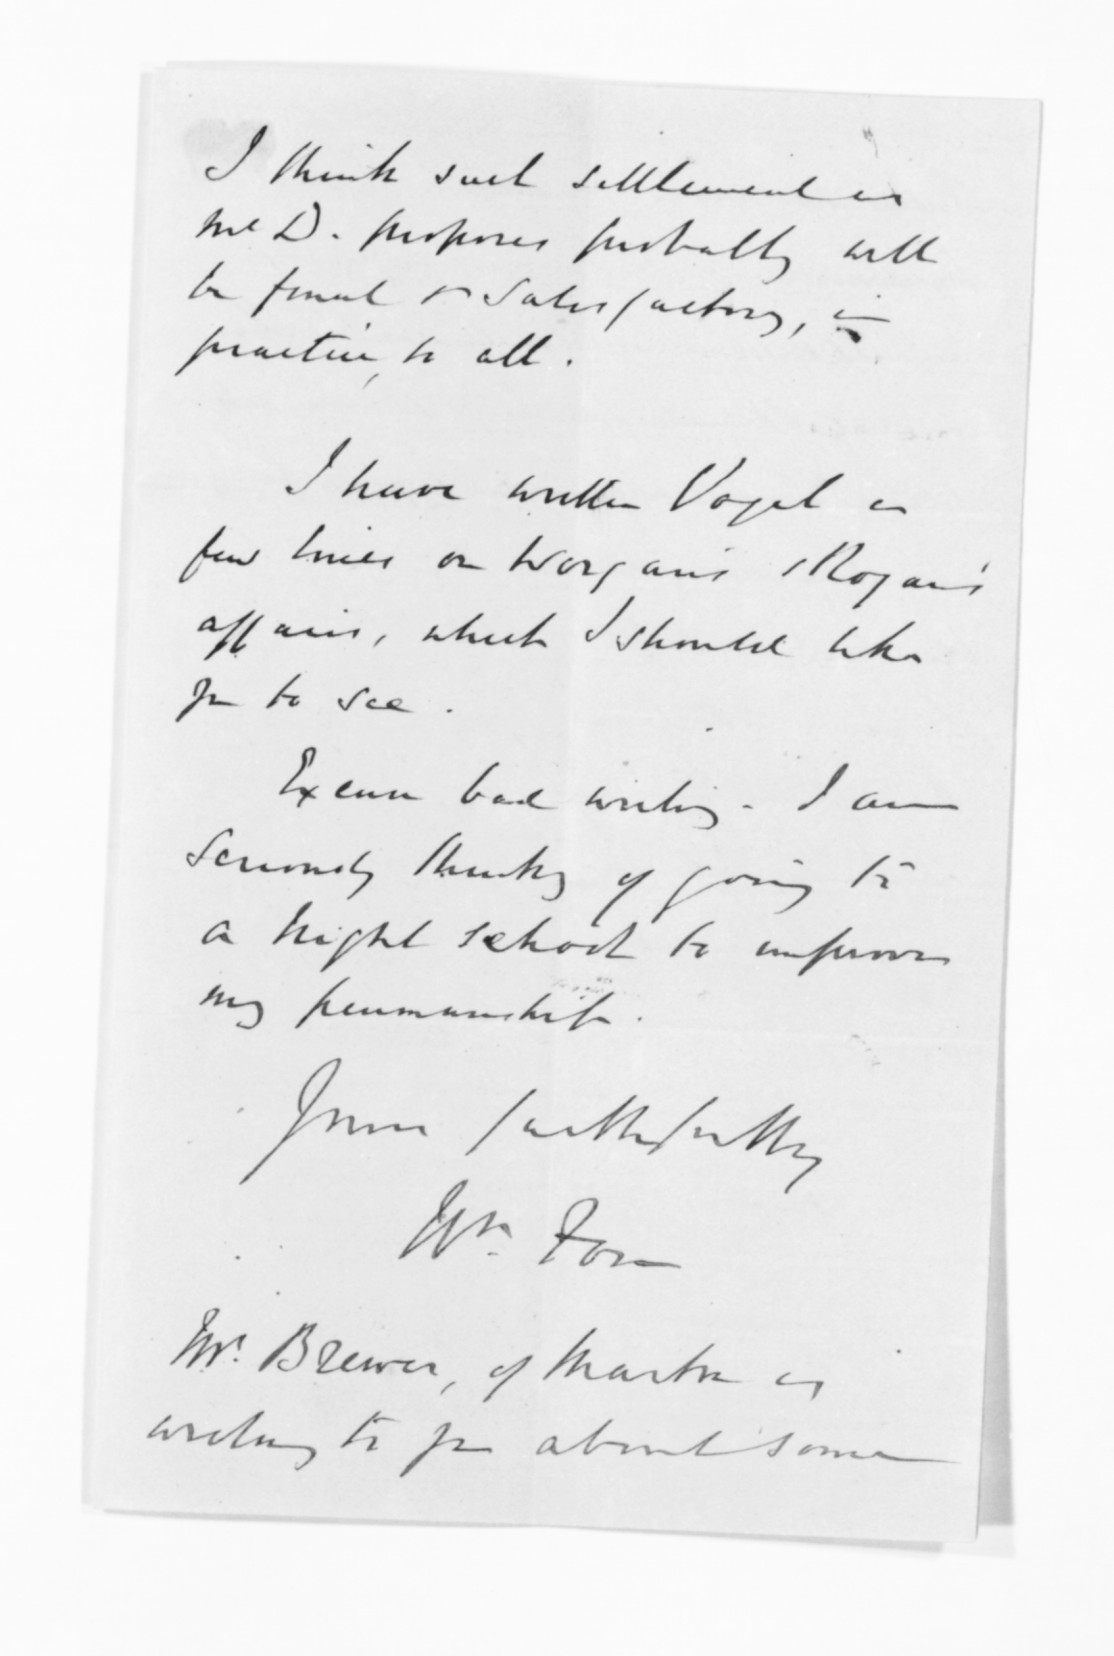 I think such settlement as
McD. proposes probably will
be final & satisfactory, in
practice, to all.
I have written Vogel a
few lines on Worgan's & Rogan's
affairs, which I should like
you to see.
Excuse bad writing. I am
seriously thinking of going to
a night school to improve
my penmanship.
Yours faithfully
Wm. Fox
Mr. Brewer, of Marton is
writing to you about some